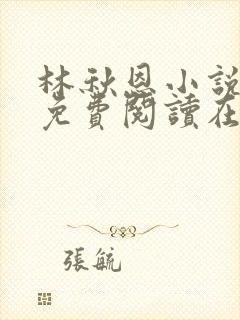 林秋恩小說
免費閱讀在
張毓